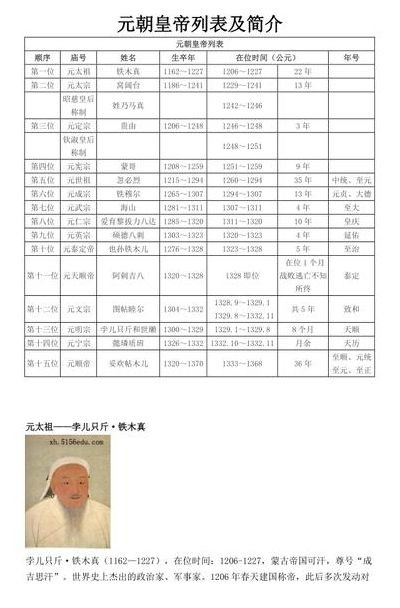 元朝皇帝列表及简介
元朝皇帝列表
顺序 庙号 姓名 生卒年 在位时间（公元） 年号
第一位 元太祖 铁木真 1162～1227 1206～1227 22 年
第二位 元太宗 窝阔台 1186～1241 1229～1241 13 年
昭慈皇后称制 姓乃马真 1242～1246
第三位 元定宗 贵由 1206～1248 1246～1248 3 年
钦淑皇后称制 1248～1251
第四位 元宪宗 蒙哥 1208～1259 1251～1259 9 年
第五位 元世祖 忽必烈 1215～1294 1260～1294 35 年 中统、至元
第六位 元成宗 铁穆尔 1265～1307 1294～1307 13 年 元贞、大德
第七位 元武宗 海山 1281～1311 1307～1311 4 年 至大
第八位 元仁宗 爱育黎拔力八达 1285～1320 1311～1320 10 年 皇庆
第九位 元英宗 硕德八剌 1303～1323 1320～1323 4 年 延佑
第十位 元泰定帝 也孙铁木儿 1276～1328 1323～1328 5 年 至治
第十一位 元天顺帝 阿剌吉八 1320～1328 1328 即位 在位 1 个月战败逃亡不知所终 泰定
第十二位 元文宗 图帖睦尔 1304～1332 1328.9～1329.1 1329.8～1332.11 共 5 年 致和
第十三位 元明宗 孛儿只斤和世瓎 1300～1329 1329.1～1329.8 8 个月 天顺
第十四位 元宁宗 懿璘质班 1326～1332 1332.10～1332.11 月余 天历
第十五位 元顺帝 妥欢帖木儿 1320～1370 1333～1368 36 年 至顺、元统至元、至正
元太祖——孛儿只斤·铁木真
xh.5156edu.com
孛儿只斤·铁木真（1162—1227），在位时间：1206-1227，蒙古帝国可汗，尊号“成
吉思汗”。世界史上杰出的政治家、军事家。1206 年春天建国称帝，此后多次发动对